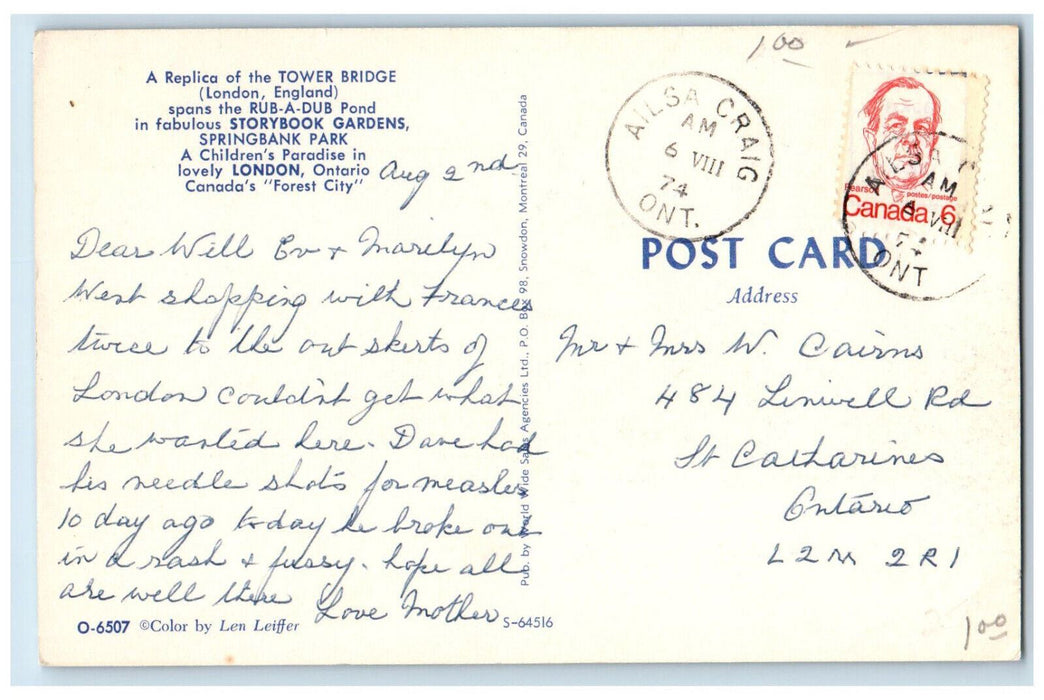 A Replica of the TOWER BRIDGE
(London, England)
spans the RUB-A-DUB Pond
in fabulous STORYBOOK GARDENS,
SPRINGBANK PARK
A Children's Paradise in
lovely LONDON, Ontario
Canada's "Forest City"
Aug 2nd
Dear Will Ev + Marilyn
Went shopping with Frances
twice to the out skerts of
London couldn't get what
she wanted here. Dave had
his needle shots for measles
10 day ago today he broke out
in a rash & fussy. hope all
are well there
Love Mother
O-6507 ©Color by Len Leiffer
S-64516
Pub. by World Wide Sales Agencies Ltd., P.O. Box 98, Snowdon, Montreal 29, Canada
1 00
AILSA CRAIG
AM
6 VIII
74
ONT.
Pearson
postes/postage
Canada 6
AILSA C
AM
VIII
74
ONT
POST CARD
Address
Mr + Mrs W. Cairns
484 Linwell Rd
St Catharines
Ontario
L2M 2R1
1 00